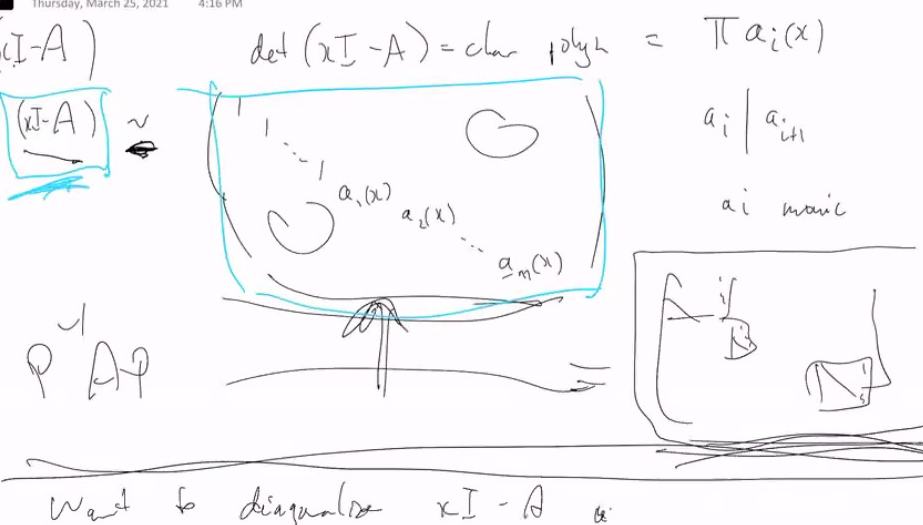 Thursday, March 25, 2021 4:16 PM
xI-A)
det (xI-A) = char polyn = Π aᵢ(x)
(xI-A) ~
1
1
⋱
1
a₁(x)
a₂(x)
⋱
aₘ(x)
aᵢ | aᵢ₊₁
aᵢ monic
P⁻¹AP
=
Want to diagonalize xI-A